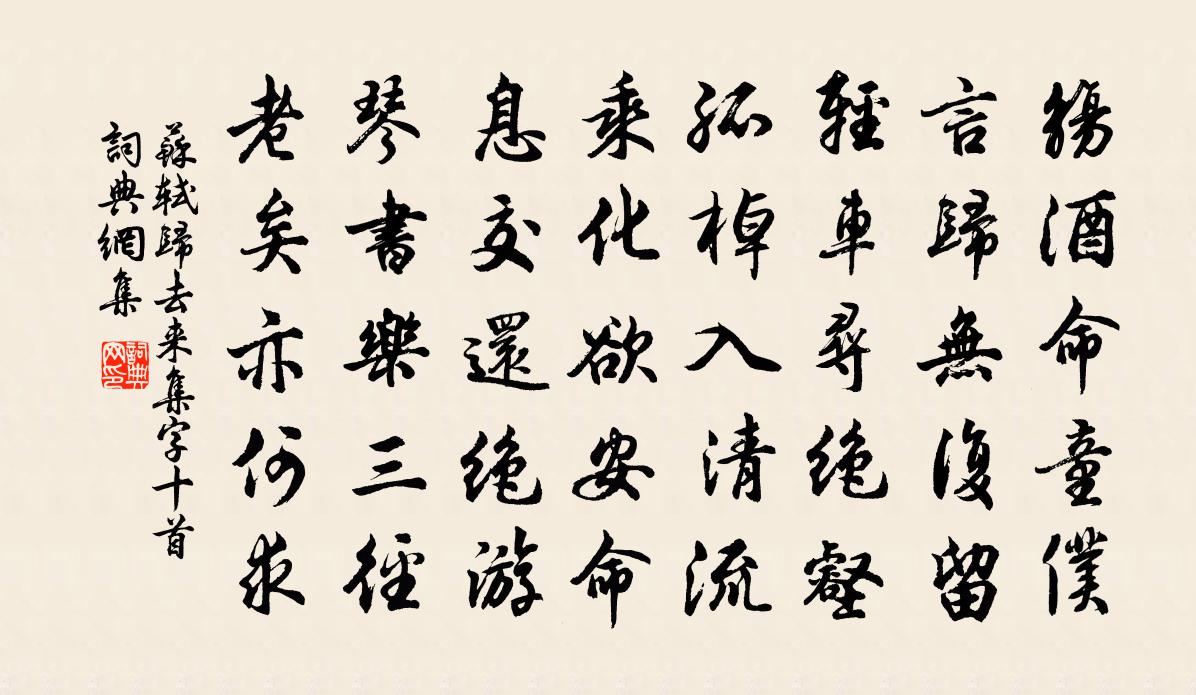 觴酒命童僕
言歸無復留
輕車尋絶壑
孤棹入清流
乘化欲安命
息交還絶游
琴書樂三徑
老矣亦何求
蘇軾歸去来集字十首
詞典網集
詞典網印